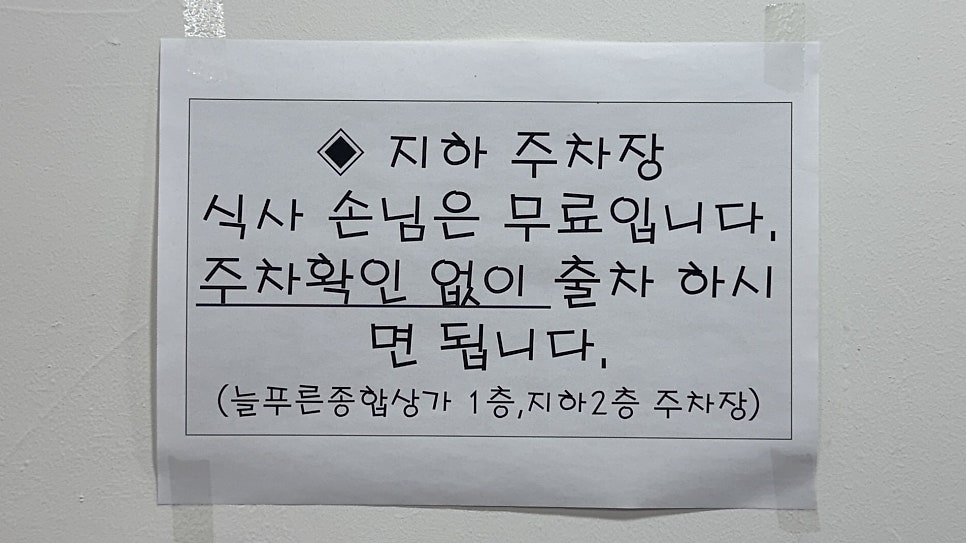 ◈ 지하 주차장
식사 손님은 무료입니다.
주차확인 없이 출차 하시
면 됩니다.
(늘푸른종합상가 1층,지하2층 주차장)